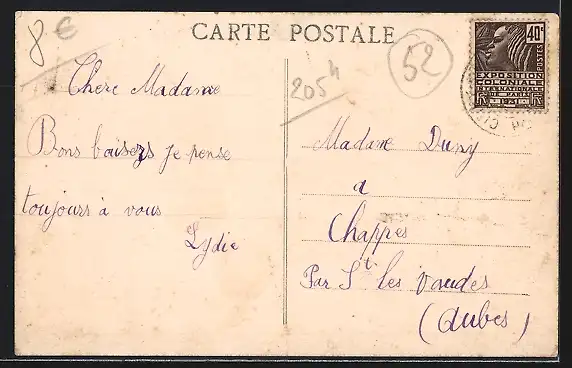 8 €
CARTE POSTALE
52
205h
40c
POSTES
EXPOSITION
COLONIALE
INTERNATIONALE
PARIS
1931
Chere Madame
Bons baisers je pense
toujours à vous
Lydie
Madame Duny
a
Chappes
Par St les Vaudes
(Aubes)